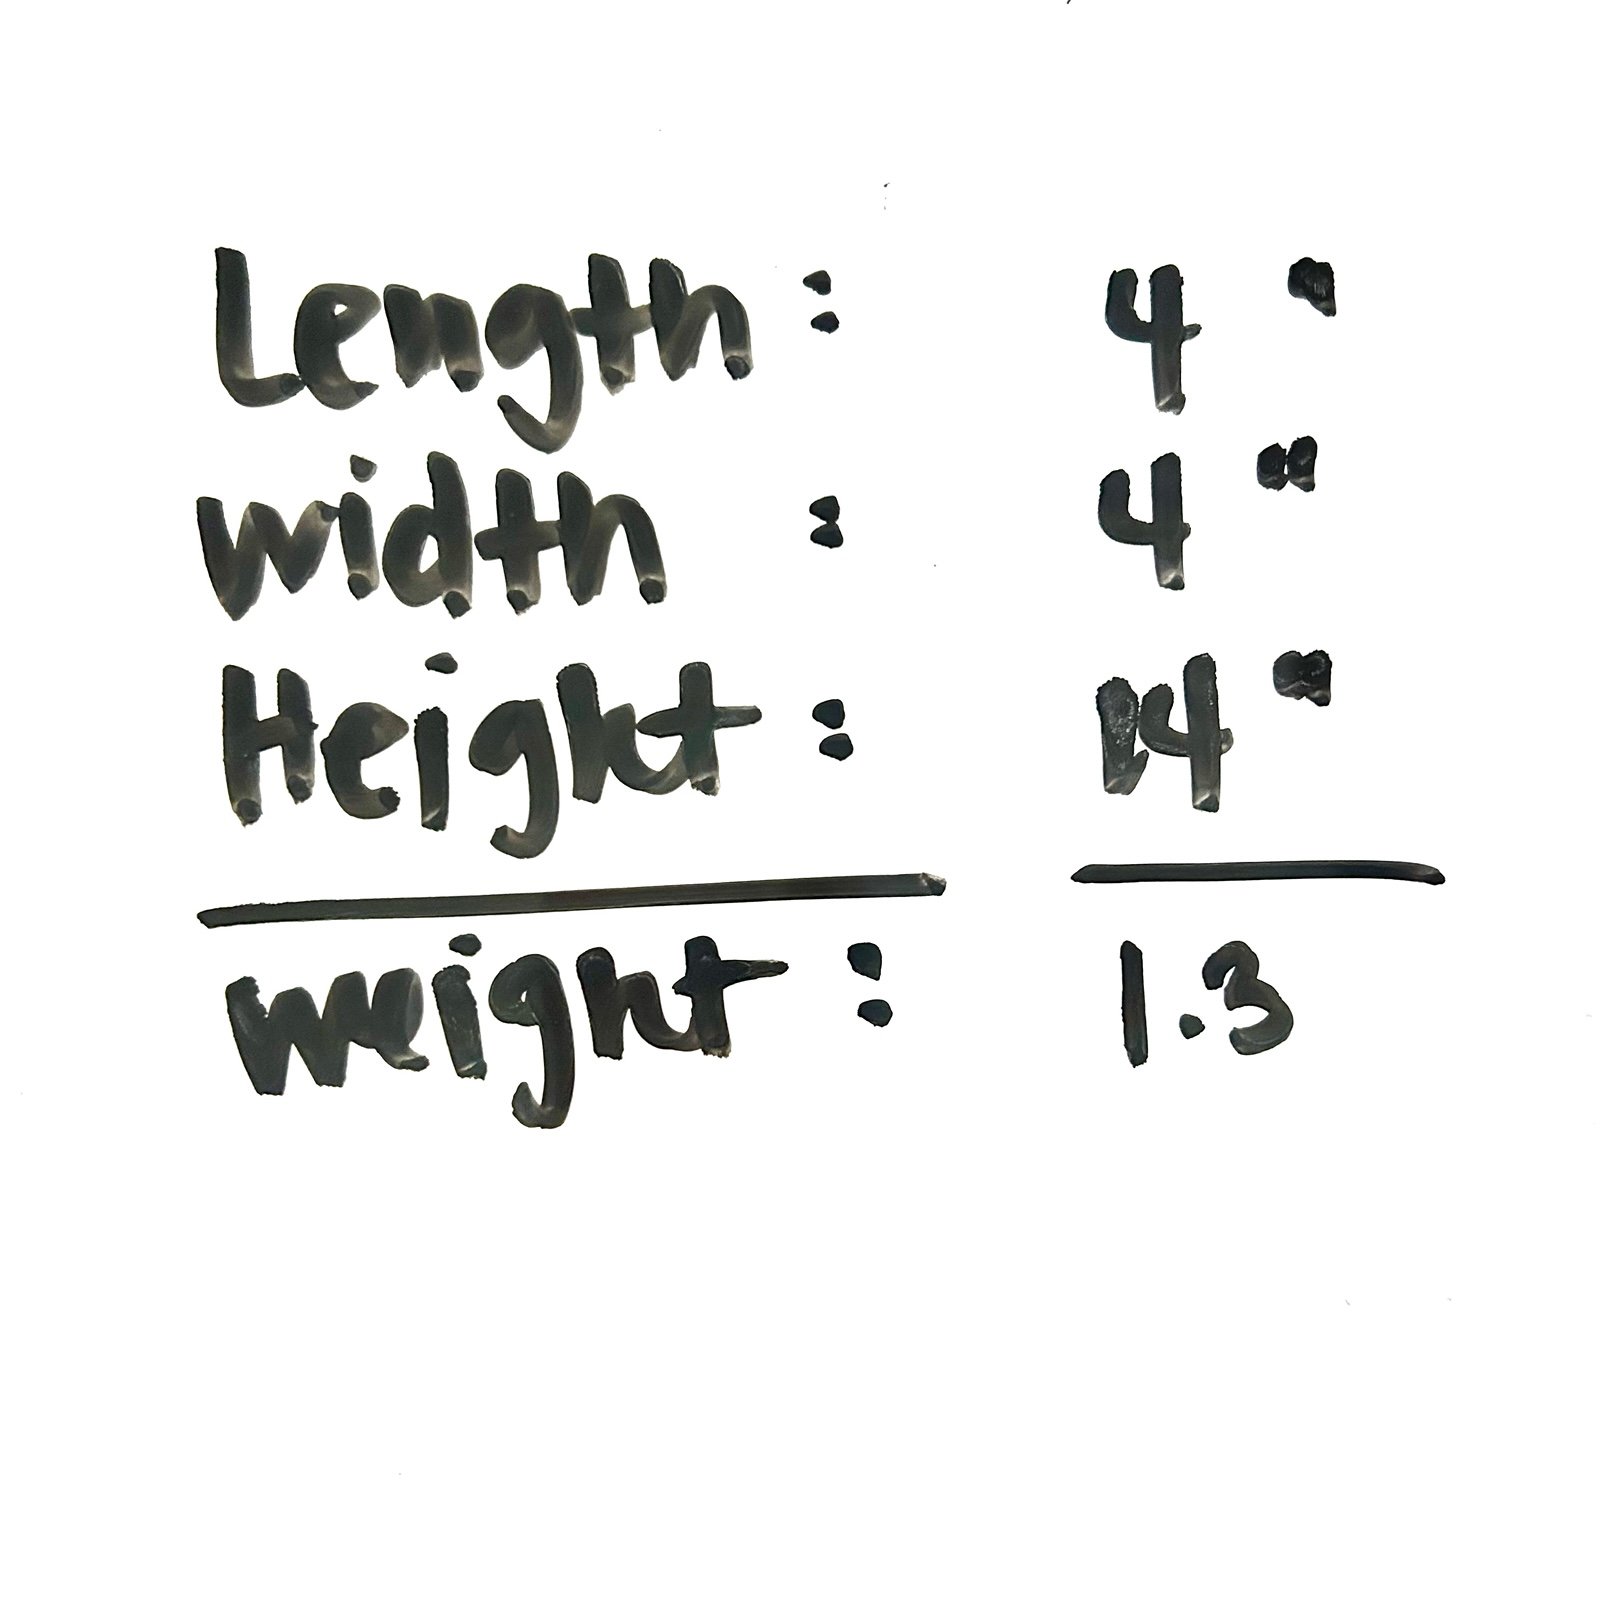 Length : 4 "
width : 4 "
Height : 14 "
weight : 1.3